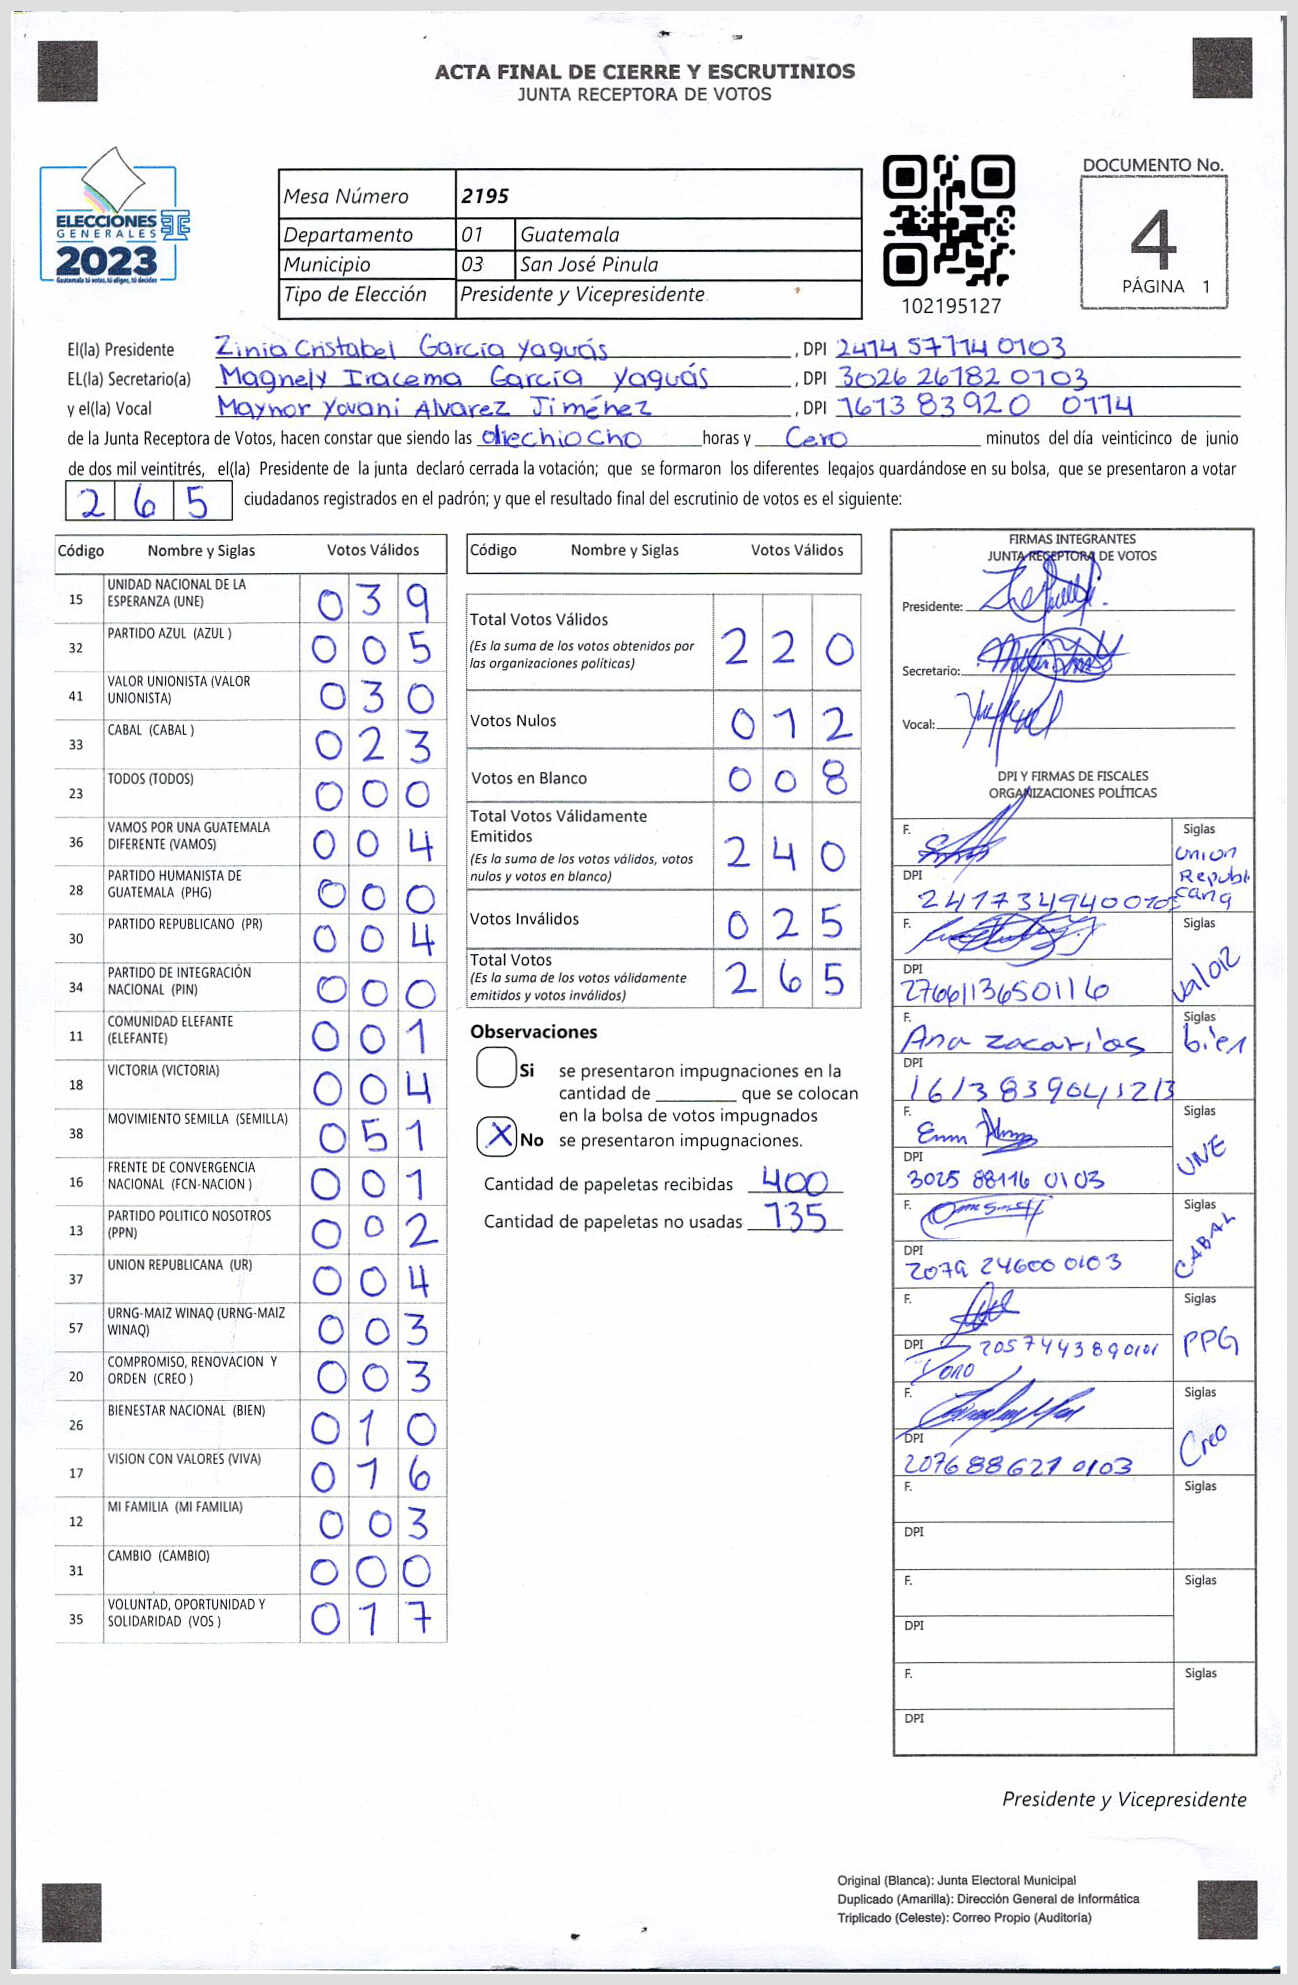 ACTA FINAL DE CIERRE Y ESCRUTINIOS
JUNTA RECEPTORA DE VOTOS
ELECCIONES
GENERALES
2023
Guatemala tú votas, tú eliges, tú decides
Mesa Número 2195
Departamento 01 Guatemala
Municipio 03 San José Pinula
Tipo de Elección Presidente y Vicepresidente
102195127
DOCUMENTO No.
4
PÁGINA 1
El(la) Presidente Zinia Cristabel García Yaguás, DPI 2414 57714 0103
EL(la) Secretario(a) Magnely Iracema García Yaguás, DPI 3026 26782 0103
y el(la) Vocal Maynor Yovani Alvarez Jiménez, DPI 1613 83920 0114
de la Junta Receptora de Votos, hacen constar que siendo las diechiocho horas y Cero minutos del día veinticinco de junio
de dos mil veintitrés, el(la) Presidente de la junta declaró cerrada la votación; que se formaron los diferentes legajos quardándose en su bolsa, que se presentaron a votar
265 ciudadanos registrados en el padrón; y que el resultado final del escrutinio de votos es el siguiente:
Código Nombre y Siglas Votos Válidos
15 UNIDAD NACIONAL DE LA ESPERANZA (UNE) 039
32 PARTIDO AZUL (AZUL ) 005
41 VALOR UNIONISTA (VALOR UNIONISTA) 030
33 CABAL (CABAL ) 023
23 TODOS (TODOS) 000
36 VAMOS POR UNA GUATEMALA DIFERENTE (VAMOS) 004
28 PARTIDO HUMANISTA DE GUATEMALA (PHG) 000
30 PARTIDO REPUBLICANO (PR) 004
34 PARTIDO DE INTEGRACIÓN NACIONAL (PIN) 000
11 COMUNIDAD ELEFANTE (ELEFANTE) 001
18 VICTORIA (VICTORIA) 004
38 MOVIMIENTO SEMILLA (SEMILLA) 051
16 FRENTE DE CONVERGENCIA NACIONAL (FCN-NACION ) 001
13 PARTIDO POLITICO NOSOTROS (PPN) 002
37 UNION REPUBLICANA (UR) 004
57 URNG-MAIZ WINAQ (URNG-MAIZ WINAQ) 003
20 COMPROMISO, RENOVACION Y ORDEN (CREO ) 003
26 BIENESTAR NACIONAL (BIEN) 010
17 VISION CON VALORES (VIVA) 016
12 MI FAMILIA (MI FAMILIA) 003
31 CAMBIO (CAMBIO) 000
35 VOLUNTAD, OPORTUNIDAD Y SOLIDARIDAD (VOS ) 017
Código Nombre y Siglas Votos Válidos
Total Votos Válidos 220
(Es la suma de los votos obtenidos por
las organizaciones políticas)
Votos Nulos 012
Votos en Blanco 008
Total Votos Válidamente
Emitidos 240
(Es la suma de los votos válidos, votos
nulos y votos en blanco)
Votos Inválidos 025
Total Votos 265
(Es la suma de los votos válidamente
emitidos y votos inválidos)
Observaciones
Si se presentaron impugnaciones en la
cantidad de ________ que se colocan
en la bolsa de votos impugnados
X No se presentaron impugnaciones.
Cantidad de papeletas recibidas 400
Cantidad de papeletas no usadas 135
FIRMAS INTEGRANTES
JUNTA RECEPTORA DE VOTOS
Presidente:
Secretario:
Vocal:
DPI Y FIRMAS DE FISCALES
ORGANIZACIONES POLÍTICAS
F. Siglas Union Republicana
DPI
F. Siglas Valor
DPI 2766113650116
F. Ana Zacarías Siglas bien
DPI
F. Siglas UNE
DPI 3025 88116 0103
F. Siglas CABAL
DPI 2079 24600 0103
F. Siglas PPG
DPI 2057443890101
F. Siglas Creo
DPI 2076886270103
F. Siglas
DPI
F. Siglas
DPI
F. Siglas
DPI
Presidente y Vicepresidente
Original (Blanca): Junta Electoral Municipal
Duplicado (Amarilla): Dirección General de Informática
Triplicado (Celeste): Correo Propio (Auditoría)